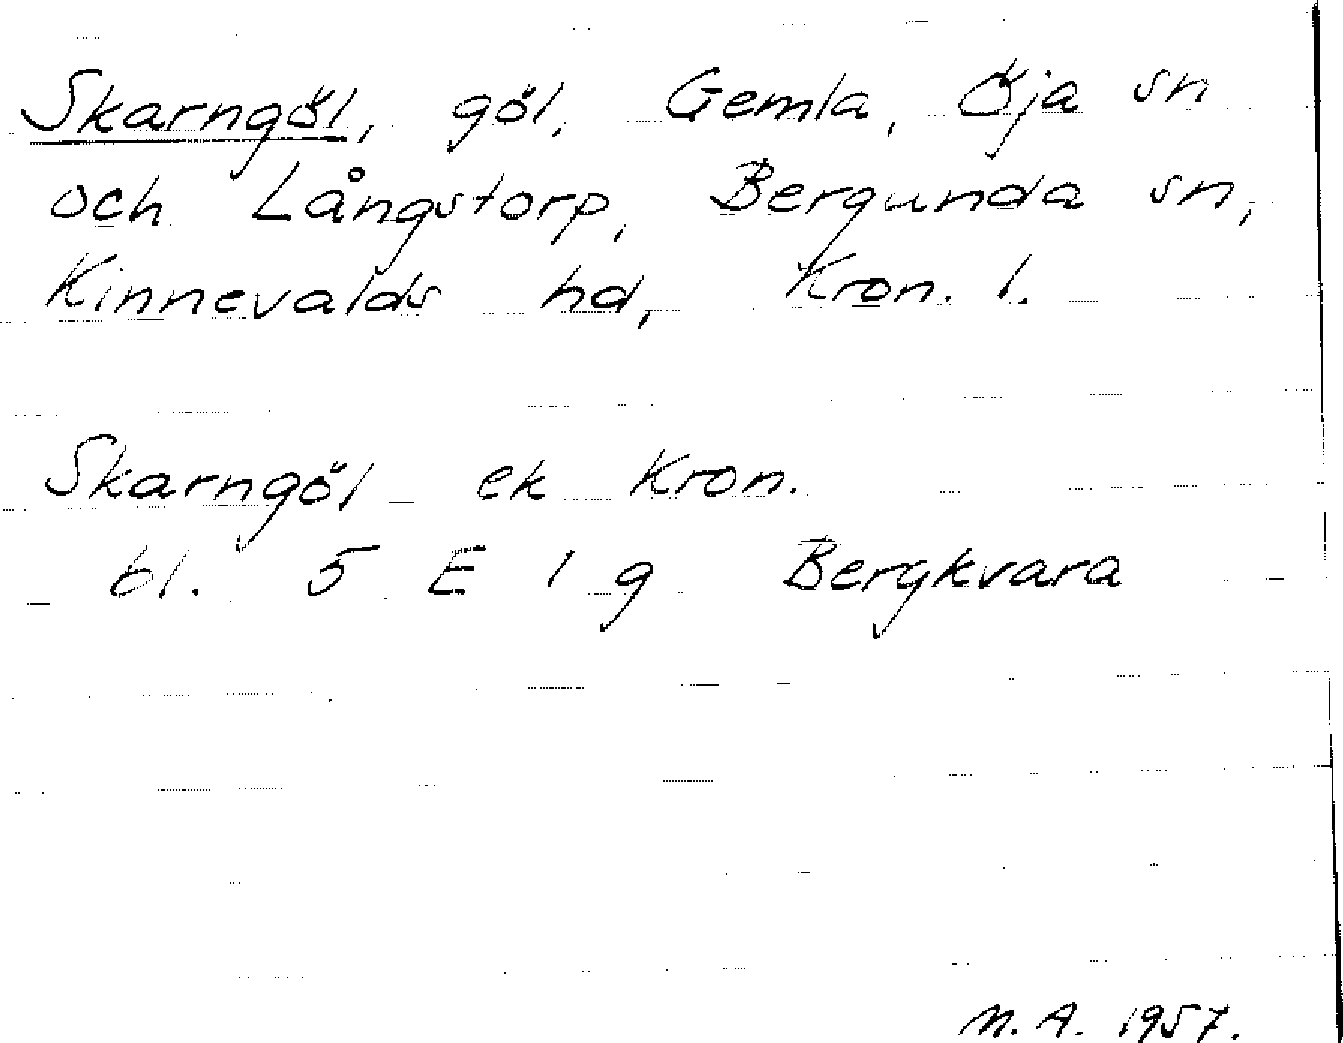 Skarngöl, göl, Gemla, Öja sn
och Långstorp, Bergunda sn,
Kinnevalds hd, Kron. l.
Skarngöl ek Kron.
bl. 5 E 1 g Bergkvara
M. A. 1957.